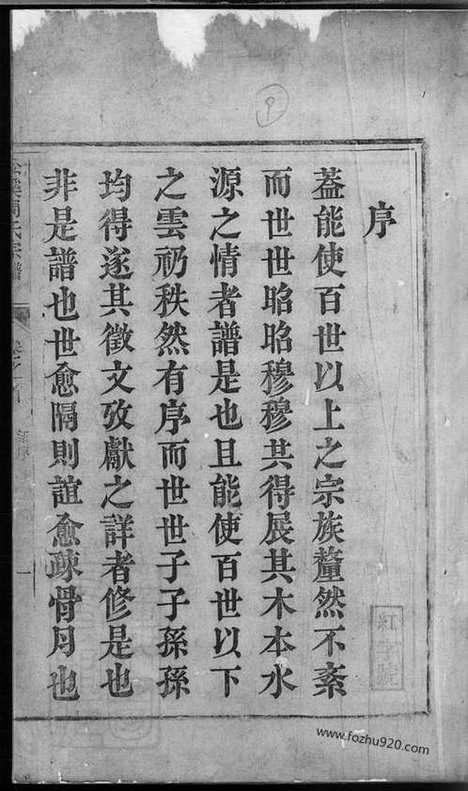 序
葢能使百世以上之宗族釐然不紊
而世世昭昭穆穆共得展其木本水
源之情者譜是也且能使百世以下
之雲礽秩然有序而世世子子孫孫
均得遂其徵文攷獻之詳者修是也
非是譜也世愈隔則誼愈疎骨月也
氏宗譜
www.fozhu920.com